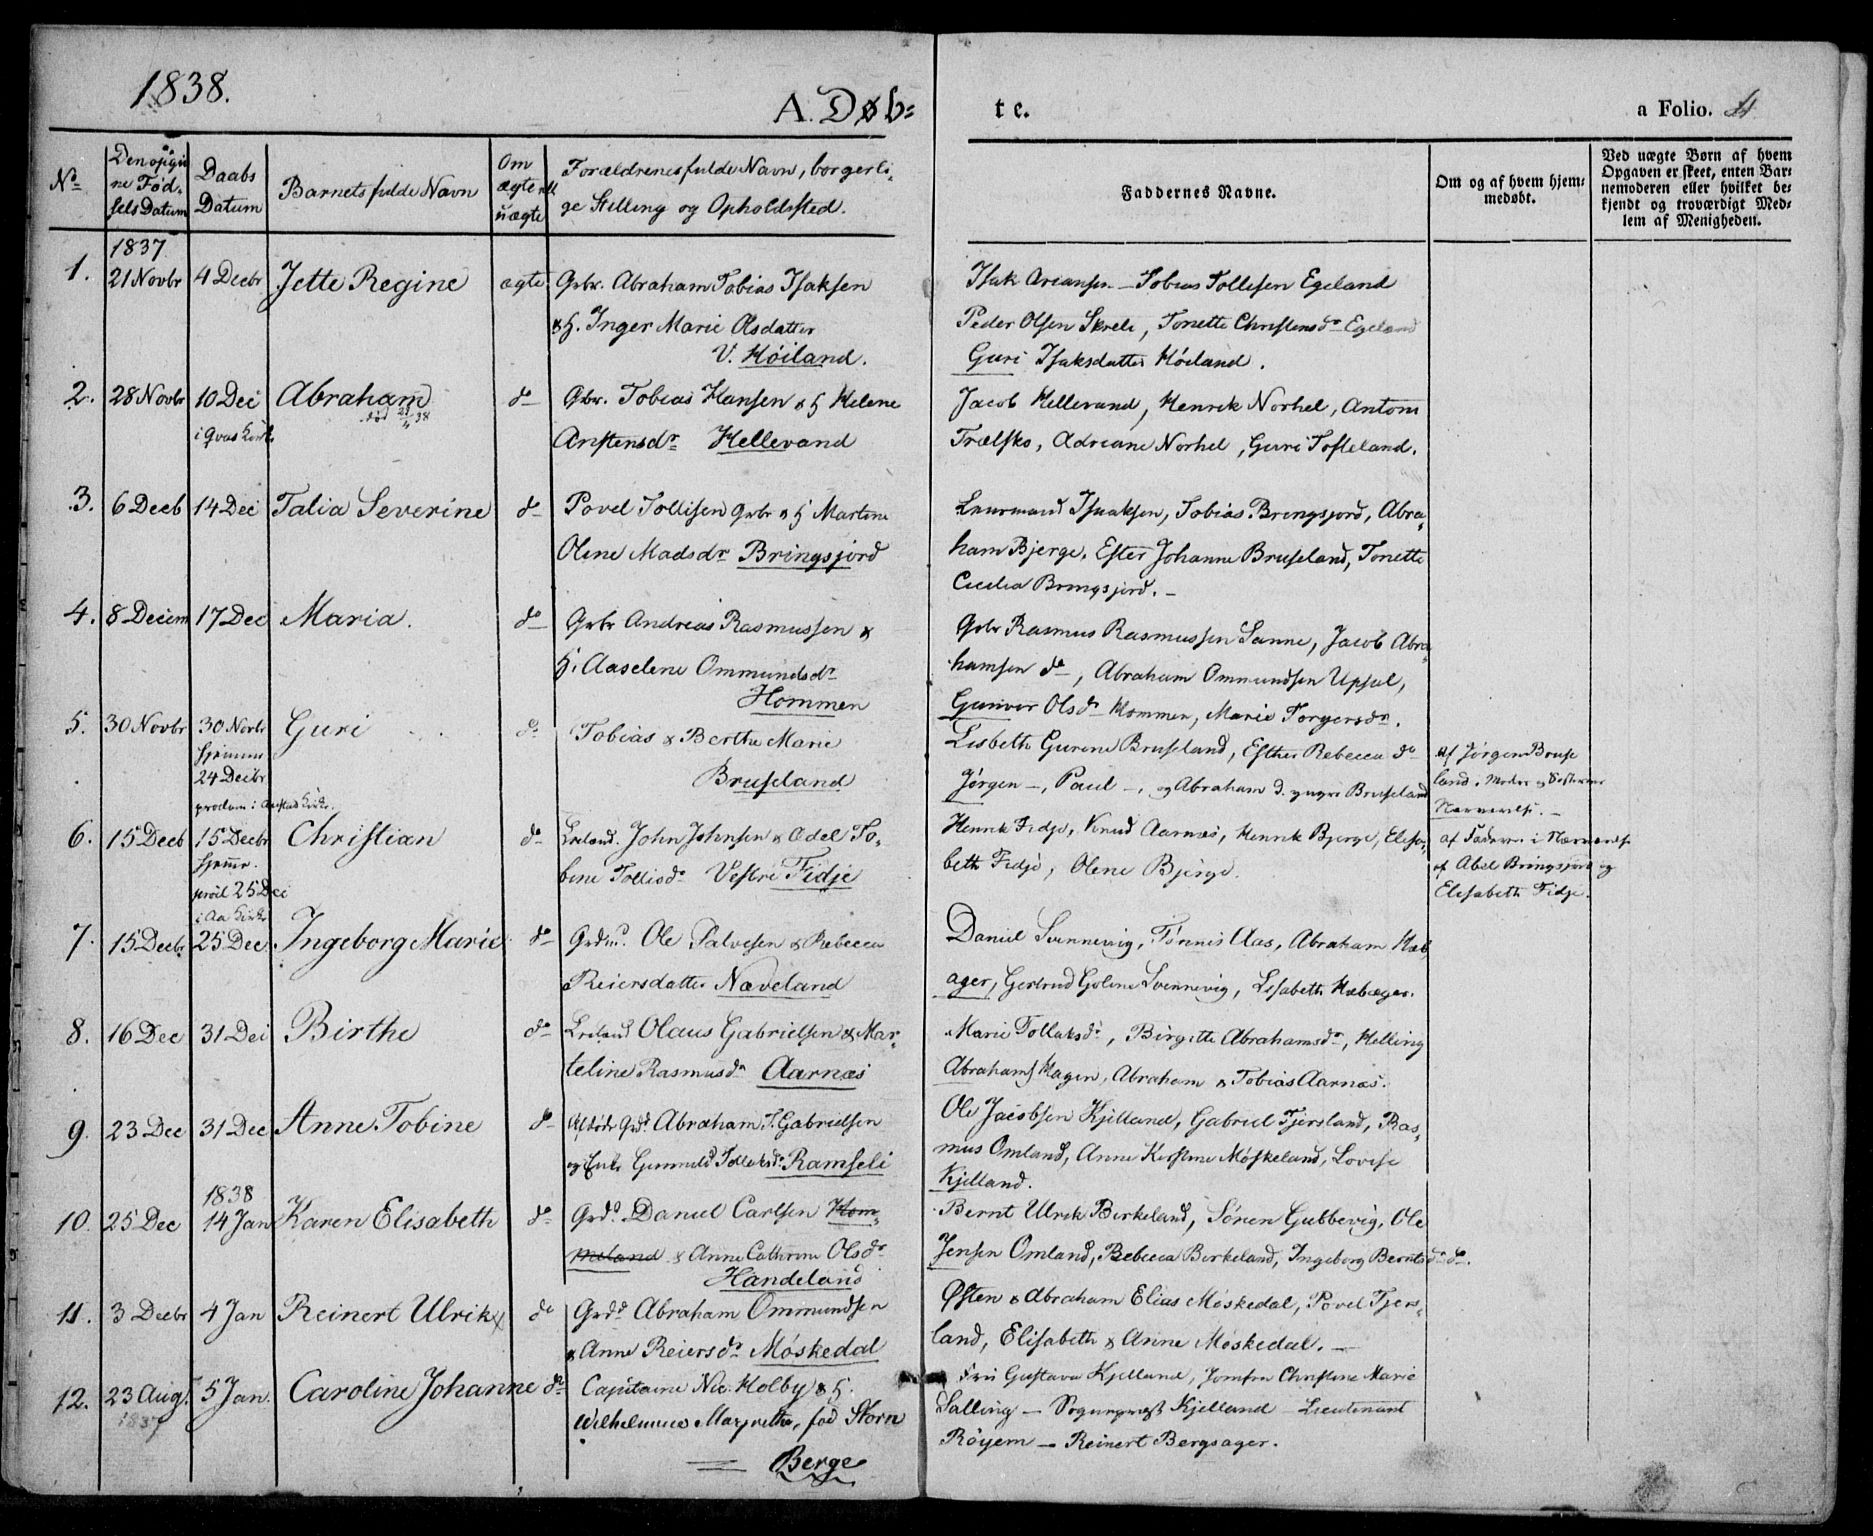 1838.
A. Døb=
te.
a Folio. 4
No
Den opgiv
ne Fød=
sels Datum
Daabs
Datum
Barnets fulde Navn
Om
ægte ell
uægte
Forældrenes fulde Navn, borgerli=
ge Stilling og Opholdssted.
Faddernes Navne.
Om og af hvem hjem=
medøbt.
Ved uægte Børn af hvem
Opgaven er skeet, enten Bar=
nemoderen eller hvilket be=
kjendt og troværdigt Med=
lem af Menigheden.
1837
1. 21 Novbr 4 Decbr Jette Regine ægte Grbr. Abraham Tobias Isaksen
& H. Inger Marie Olsdatter
V. Høiland.
Isak Ariansen — Tobias Tollisen Egeland
Peder Olsen Skrele, Tonette Christensdr Egeland
Guri Isaksdatter Høiland.
2. 28 Novbr 10 Dec Abraham do Gbr. Tobias Hansen & H Helene
i Qvas Kirke
Anstensdr Hellevand
Jacob Hellevand, Henrik Norhel, Antoni
Trælsko, Adriane Norhel, Guri Tofteland.
3. 6 Decb 14 Dec Talia Severine do Povel Tollisen Grbr & H Martine
Olene Madsdr Bringsjord
Lensmand Isaaksen, Tobias Bringsjord, Abra=
ham Bjerge, Ester Johanne Bruseland, Tonette
Cecilia Bringsjord. —
4. 8 Decem 17 Dec Maria. do Grbr Andreas Rasmussen &
H. Aaselene Ommundsdr
Hommen
Grbr Rasmus Rasmussen Sanne, Jacob Abra=
hamsen do, Abraham Ommundsen Upsal,
Gunvor Olsdr Hommen, Marie Torgersdr.
5. 30 Novbr 30 Novbr Guri do Tobias & Berthe Marie
hjemme
24 Decbr
Bruseland
Lisbeth Gurine Bruseland, Esther Rebecca do
Jørgen —, Paul —, og Abraham d. yngre Bruseland
Af Jørgen Bruse
land i Moder og
Nærværelse. —
6. 15 Decb 15 Decbr Christian do John Johnsen & Adel To=
hjemme.
25 Dec
i Aa Kirke
bine Tollisdr Vestre Fidje
Henrik Fidje, Knud Aarnæs, Henrik Bjerge, Elisa=
beth Fidje, Olene Bjerge.
af Faderen i Nærværelse
af Abel Bringsjord og
Elisabeth Fidje.
7. 15 Decbr 25 Dec Ingeborg Marie do Grdm. Ole Salvesen & Rebecca
Reiersdatter Næveland
Daniel Svennevig, Tønnis Aas, Abraham Hæb
ager, Gertrud Golene Svennevig, Lisabeth Hæbager.
8. 16 Dec 31 Dec Birthe do Olaus Gabrielsen & Mar=
teline Rasmusdr Aarnæs
Marie Tollaksdr, Birgitte Abrahamsdr, Helling
Abrahams Hagen, Abraham & Tobias Aarnæs.
9. 23 Dec 31 Dec Anne Tobine do Afdøde Grd. Abraham T. Gabrielsen
og Enke Gunnild Tollaksdr Ramseli
Ole Jacobsen Kjelland, Gabriel Fjersland, Ras=
mus Omland, Anne Kirstine Møskeland, Lovise
Kjelland.
1838
10. 25 Dec 14 Jan Karen Elisabeth do Grd. Daniel Carlsen Hom=
meland & Anne Cathrine Olsdr
Handeland
Bernt Ulrik Birkeland, Søren Gubbevig, Ole
Jensen Omland, Rebecca Birkeland, Ingeborg Berntsdr do.
11. 3 Decbr 4 Jan Reinert Ulrik do Grd. Abraham Ommundsen
& Anne Reiersdr Møskedal
Østen & Abraham Elias Møskedal, Povel Fjers=
land, Elisabeth & Anne Møskedal. —
12. 23 Aug. 5 Jan. Caroline Johanne do Capitaine Nic. Holby & H.
1837
Wilhelmine Margrethe, fød Storm
— Berge
Fru Gustava Kjelland, Jomfru Christine Marie
Salling — Sogneprest Kjelland — Lieutenant
Røyem — Reinert Bergsager.